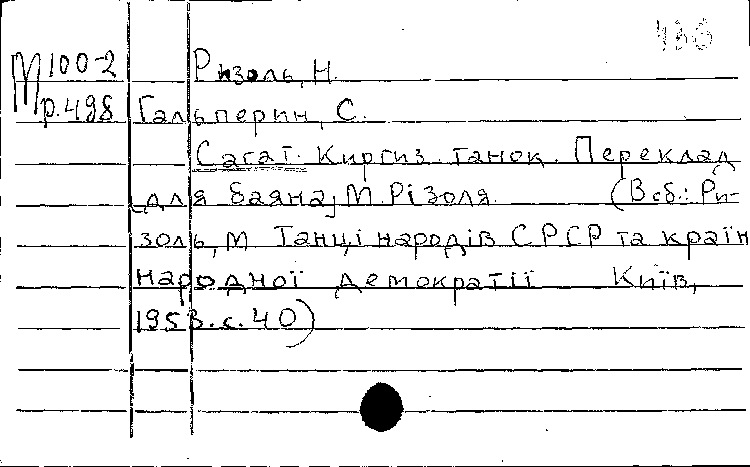 436
М 100-2 Ризоль, Н.
р.498 Гальперин, С.
Сагат. Киргиз. танок. Переклад
для баяна, М. Різоля. (В сб.: Ри-
золь, М. Танці народів СРСР та країн
народної демократії Київ,
1953. с. 40)